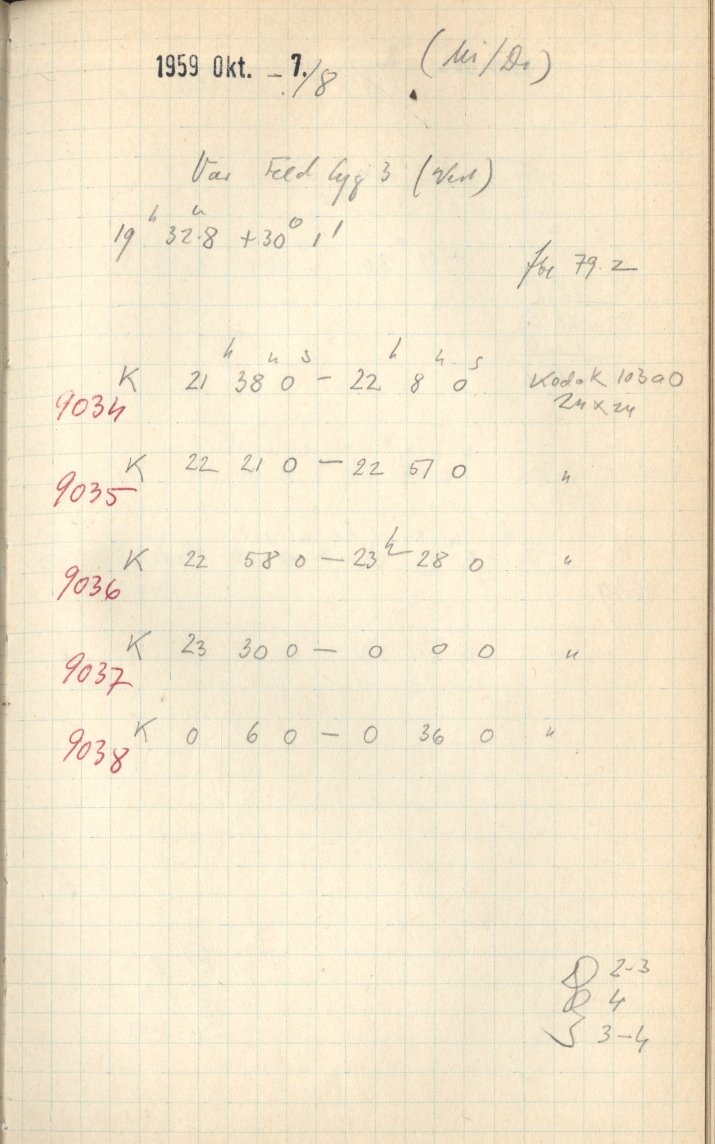 1959 Okt. - 7./8 (Mi/Do)
Var Feld Cyg 3 (West)
19h 32m.8 +30° 1'
79.2
K 21h 38m 0s - 22h 8m 0s Kodak 103aO
9034 24x24
K 22 21 0 - 22 51 0 "
9035
K 22 58 0 - 23h 28 0 "
9036
K 23 30 0 - 0 0 0 "
9037
K 0 6 0 - 0 36 0 "
9038
D 2-3
4
3-4